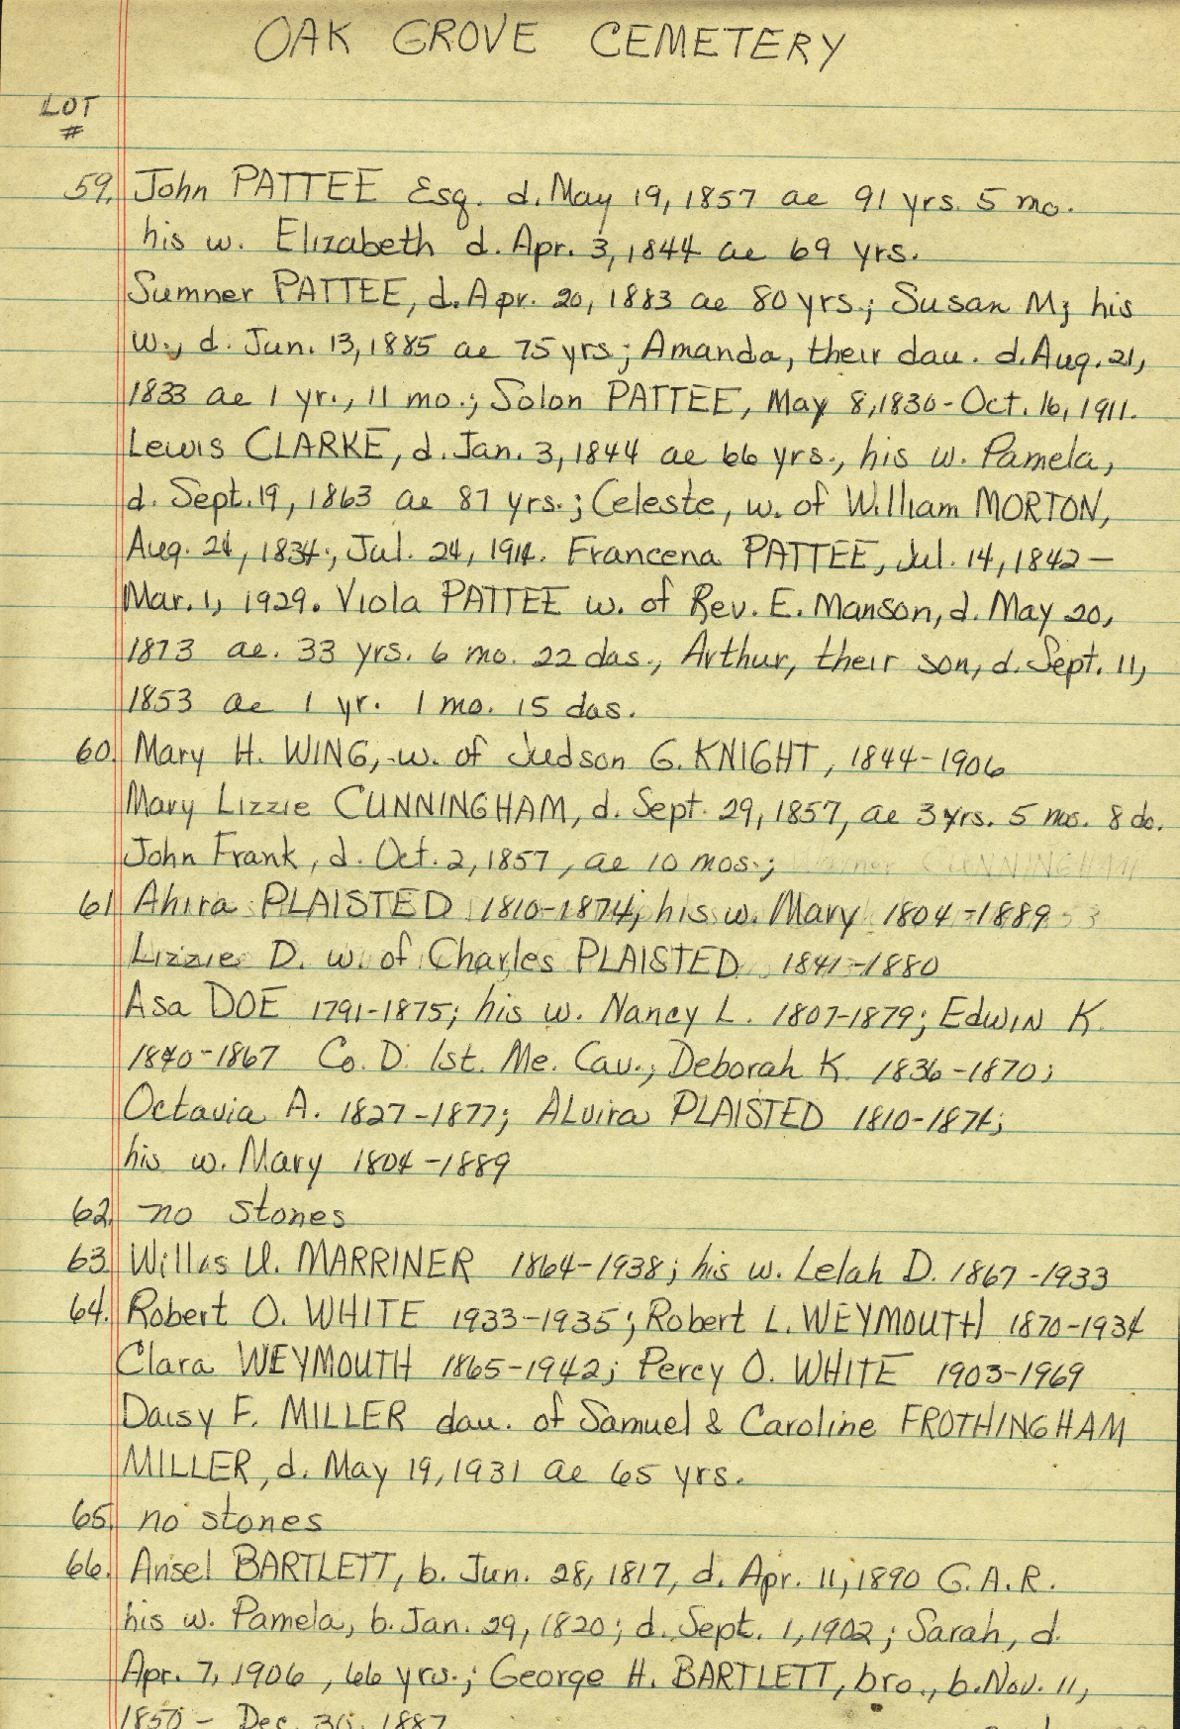 OAK GROVE CEMETERY
LOT
#
59. John PATTEE Esq. d. May 19, 1857 ae 91 yrs. 5 mo.
his w. Elizabeth d. Apr. 3, 1844 ae 69 yrs.
Sumner PATTEE, d. Apr. 20, 1883 ae 80 yrs.; Susan M; his
w., d. Jun. 13, 1885 ae 75 yrs; Amanda, their dau. d. Aug. 21,
1833 ae 1 yr., 11 mo.; Solon PATTEE, May 8, 1830-Oct. 16, 1911.
Lewis CLARKE, d. Jan. 3, 1844 ae 66 yrs., his w. Pamela,
d. Sept. 19, 1863 ae 87 yrs.; Celeste, w. of William MORTON,
Aug. 24, 1834; Jul. 24, 1914. Francena PATTEE, Jul. 14, 1842-
Mar. 1, 1929. Viola PATTEE w. of Rev. E. Manson, d. May 20,
1873 ae. 33 yrs. 6 mo. 22 das., Arthur, their son, d. Sept. 11,
1853 ae 1 yr. 1 mo. 15 das.
60. Mary H. WING, w. of Judson G. KNIGHT, 1844-1906
Mary Lizzie CUNNINGHAM, d. Sept. 29, 1857, ae 3 yrs. 5 mos. 8 da.
John Frank, d. Oct. 2, 1857, ae 10 mos.; CUNNINGHAM
61 Ahira PLAISTED 1810-1874; his w. Mary 1804-1889
Lizzie D. w. of Charles PLAISTED 1841-1880
Asa DOE 1791-1875; his w. Nancy L. 1807-1879; Edwin K.
1840-1867 Co. D. 1st. Me. Cav.; Deborah K. 1836-1870;
Octavia A. 1827-1877; ALvira PLAISTED 1810-1874;
his w. Mary 1804-1889
62. no stones
63. Willis U. MARRINER 1864-1938; his w. Lelah D. 1867-1933
64. Robert O. WHITE 1933-1935; Robert L. WEYMOUTH 1870-1934
Clara WEYMOUTH 1865-1942; Percy O. WHITE 1903-1969
Daisy F. MILLER dau. of Samuel & Caroline FROTHINGHAM
MILLER, d. May 19, 1931 ae 65 yrs.
65. no stones
66. Ansel BARTLETT, b. Jun. 28, 1817, d. Apr. 11, 1890 G.A.R.
his w. Pamela, b. Jan. 29, 1820; d. Sept. 1, 1902; Sarah, d.
Apr. 7, 1906, 66 yrs.; George H. BARTLETT, bro., b. Nov. 11,
1850 - Dec. 30, 1887